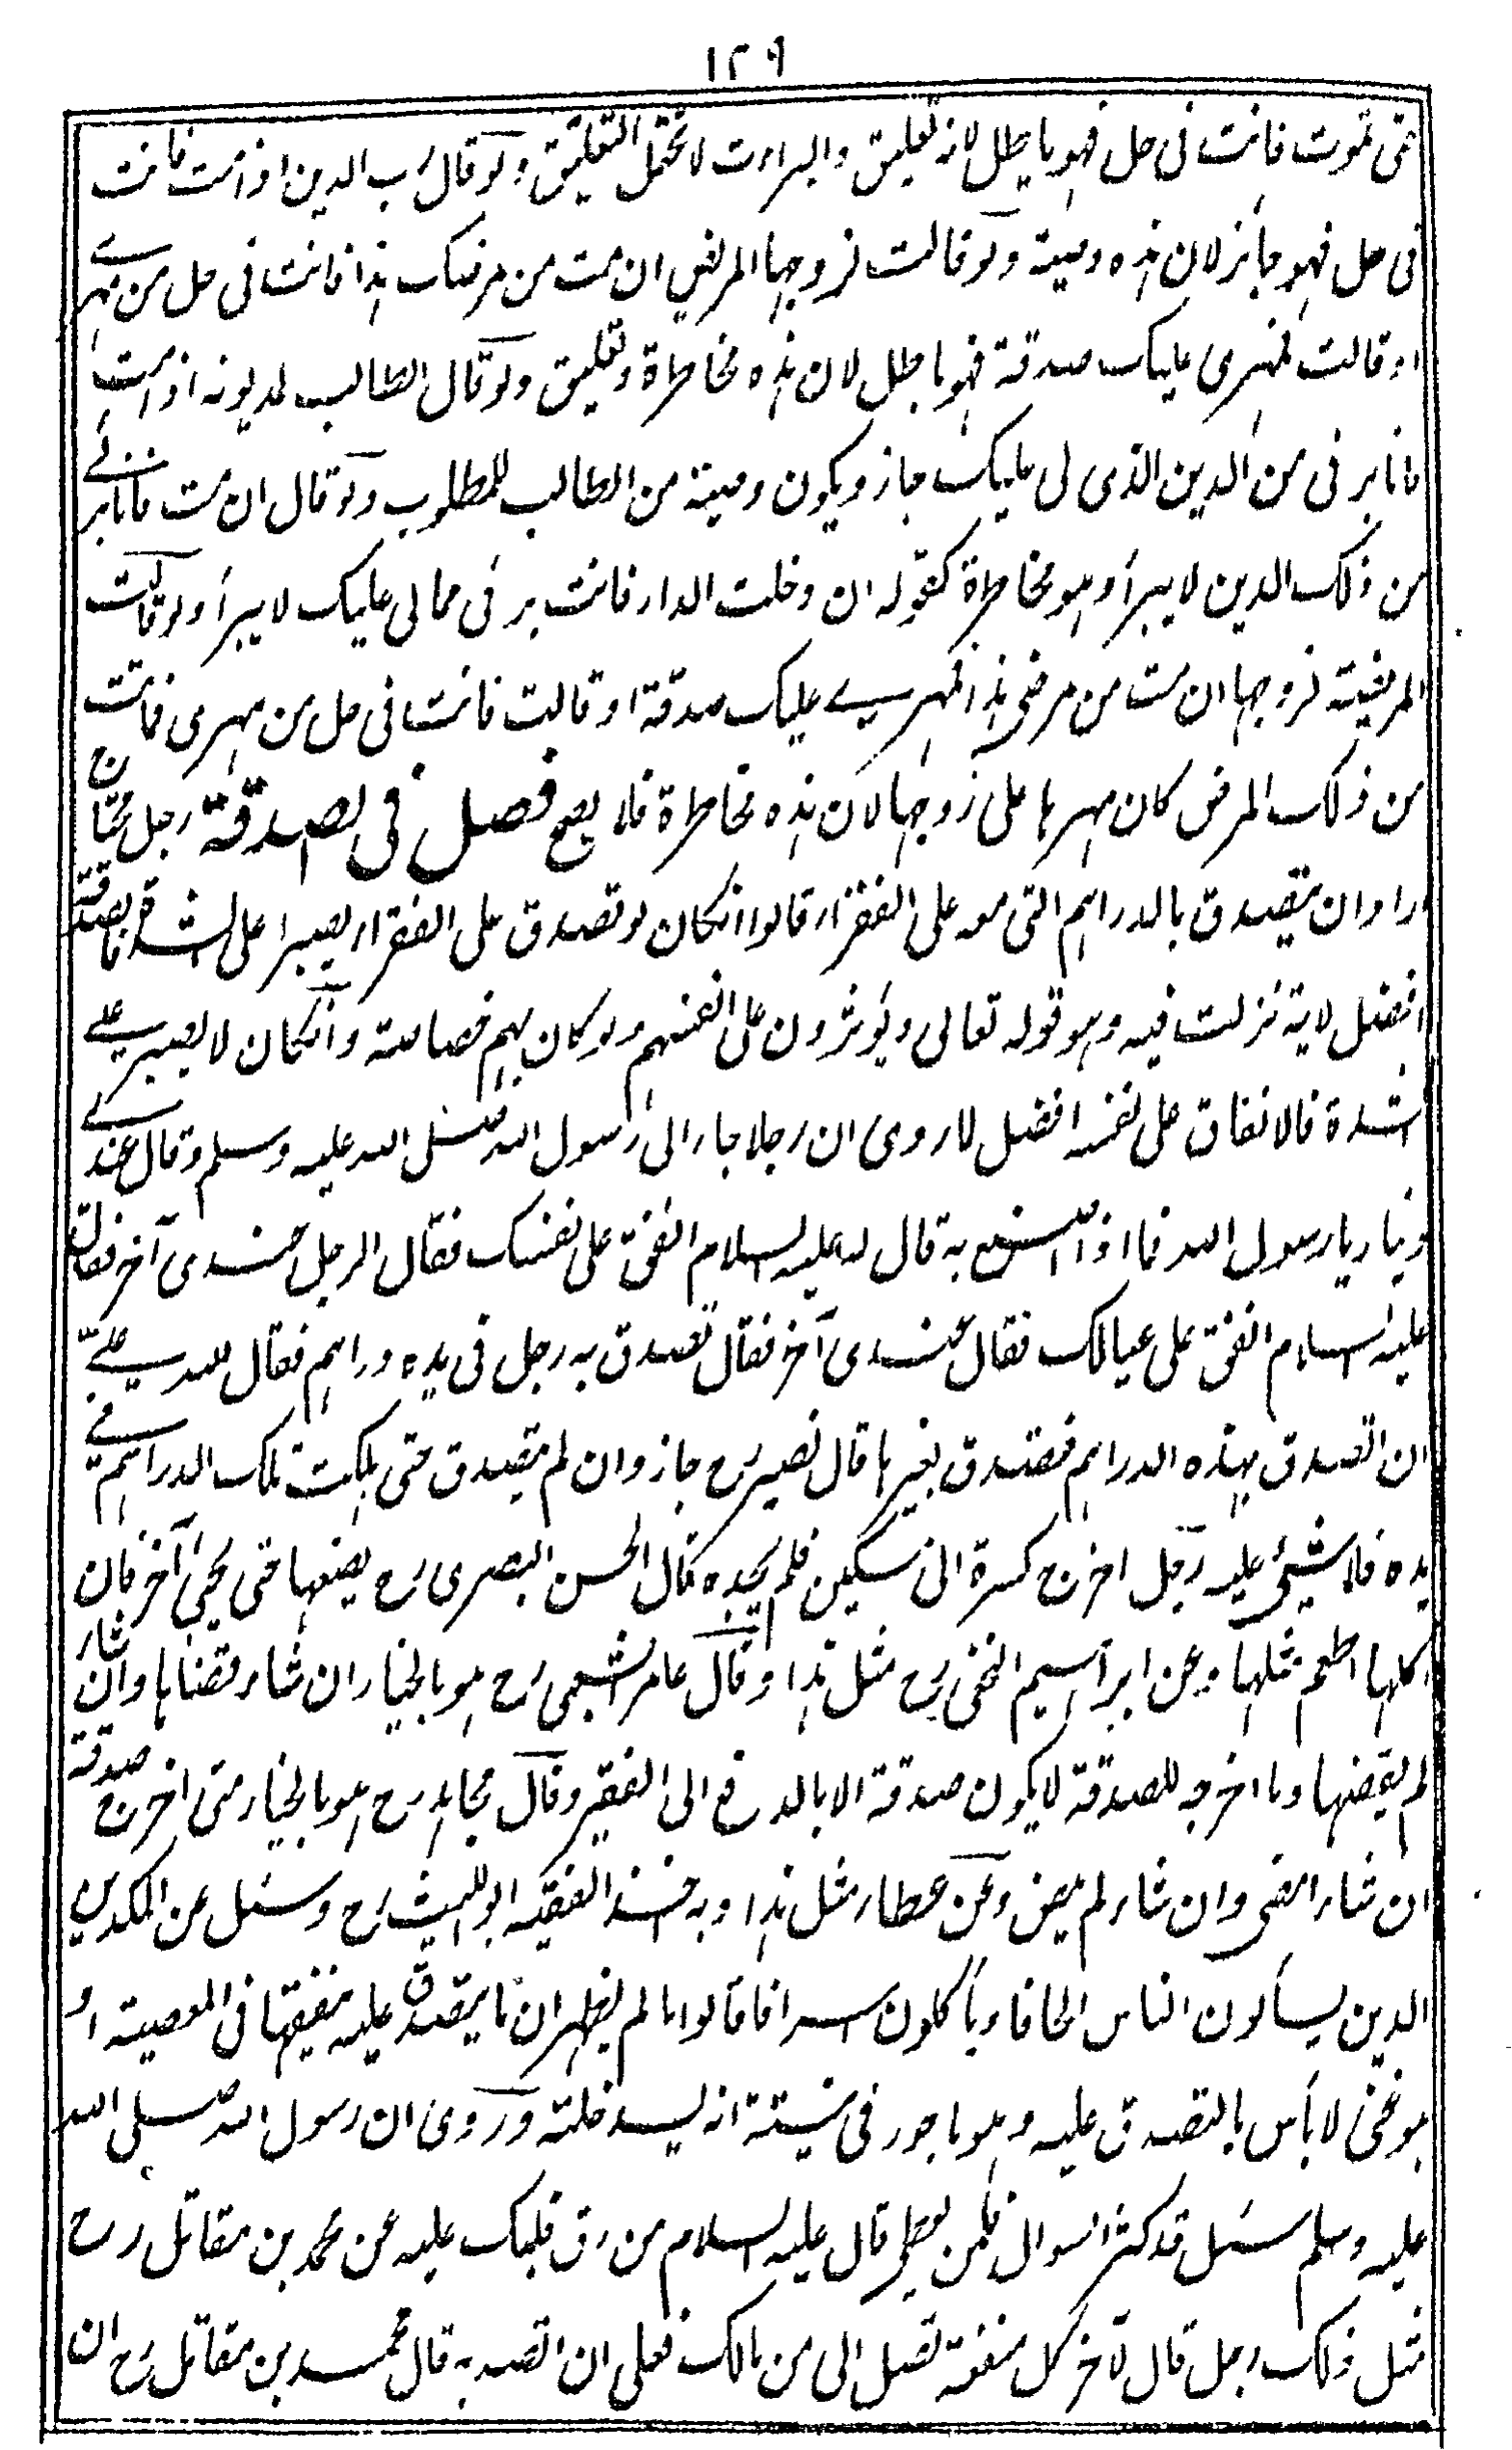 ١٢٩
حتى تموت فانت فى حل فهو باطل لانه تعليق والبراءت لا تحتمل التعليق ولو قال رب الدين اذا مت فانت
فى حل فهو جائز لان هذه وصية ولو قالت لزوجها المريض ان مت من مرضك هذا فانت فى حل من مهرے
او قالت فمهرى عليك صدقة فهو باطل لان هذه مخاطرة وتعليق ولو قال الطالب لمديونه اذا مت
فانا برى من الدين الذى لى عليك جاز ويكون وصية من الطالب للمطلوب ولو قال ان مت فانا برئے
من ذلك الدين لا يبرأ وهو مخاطرة كقوله ان دخلت الدار فانت برئ مما لى عليك لا يبرأ ولو قالت
المريضة لزوجها ان مت من مرضى هذا فمهرے عليك صدقة او قالت فانت فى حل من مهرى فماتت
من ذلك المرض كان مهرها على زوجها لان هذه مخاطرة فلا يصح فصل فى الصدقة رجل محتاج
اراد ان يتصدق بالدراهم التى معه على الفقراء قالوا انكان لو تصدق على الفقراء يصبر على الشدة فالصدقة
افضل لاية نزلت فيه وهو قوله تعالى ويؤثرون على انفسهم ولو كان بهم خصاصة وانكان لا يصبر علے
الشدة فالانفاق على نفسه افضل لما روى ان رجلا جاء الى رسول الله صلى الله عليه وسلم وقال عندے
دينار يا رسول الله فما اذا اصنع به قال له عليه السلام انفق على نفسك فقال الرجل عندى آخر فقال
عليه السلام انفق على عيالك فقال عندى آخر فقال تصدق به رجل فى يده دراهم فقال لله علےّ
ان اتصدق بهذه الدراهم فتصدق بغيرها قال نصير رح جاز وان لم يتصدق حتى هلكت تلك الدراهم فے
يده فلا شيئ عليه رجل اخرج كسرة الى مسكين فلم يجده قال الحسن البصرى رح يضعها حتى يجئ آخر فان
اكلها اطعم مثلها وعن ابراهيم النخعى رح مثل هذا وقال عامر الشعبى رح هو بالخيار ان شاء قضاها وان شاء
لم يقضها وما اخرجه للصدقة لا يكون صدقة الا بالدفع الى الفقير وقال مجاهد رح هو بالخيار متى اخرج صدقة
ان شاء امضى وان شاء لم يمض وعن عطاء مثل هذا وبه اخذ الفقيه ابو الليث رح وسئل عن المكدين
الذين يسألون الناس الحافا ويأكلون اسرافا قالوا ما لم يظهر ان ما يتصدق عليه ينفقها فى المعصية او
هو غنى لا بأس بالتصدق عليه وهو ماجور فى نيته انه يسد خلته وروى ان رسول الله صلى الله
عليه وسلم سئل قد كثر السوال فلمن يعطى قال عليه السلام من رق قلبك عليه عن محمد بن مقاتل رح
مثل ذلك رجل قال لآخر كل منفعة تصل الى من مالك فعلى ان اتصد به قال محمد بن مقاتل رح ان